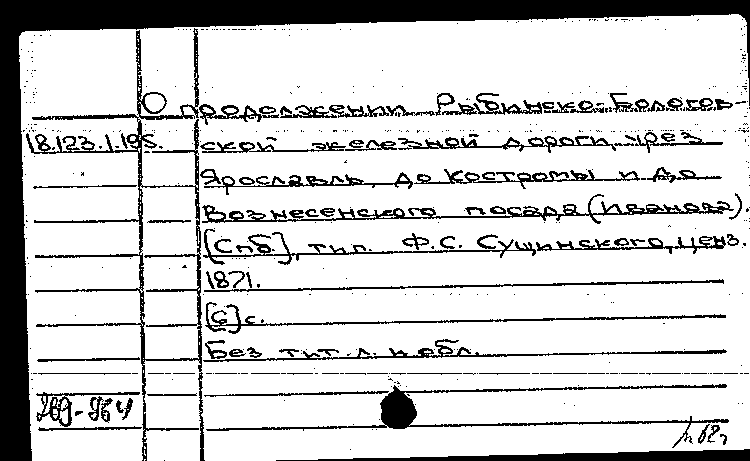 О продолжении Рыбинско-Бологов-
18.123.1.195. ской железной дороги, чрез
Ярославль, до Костромы и до
Вознесенского посада (Иванова).
[Спб], тип. Ф.С. Сущинского, ценз.
1871.
[6] с.
Без тит. л. и обл.
269-964